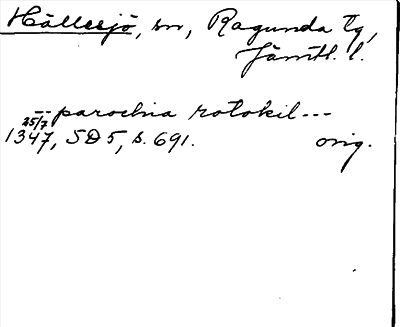 Hällesjö, sn, Ragunda tg,
Jämtl. l.
-- parochia rotokil ---
25/7
1347, SD5, s. 691. orig.